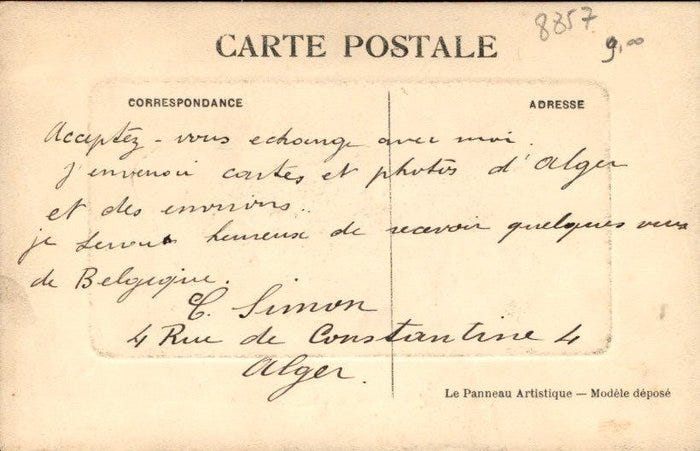 8857
9,00
CARTE POSTALE
CORRESPONDANCE
ADRESSE
Acceptez-vous echange avec moi.
J'enverai cartes et photos d'Alger
et des environs..
je serais heureux de recevoir quelques vues
de Belgique.
C. Simon
4 Rue de Constantine 4
Alger.
Le Panneau Artistique — Modèle déposé